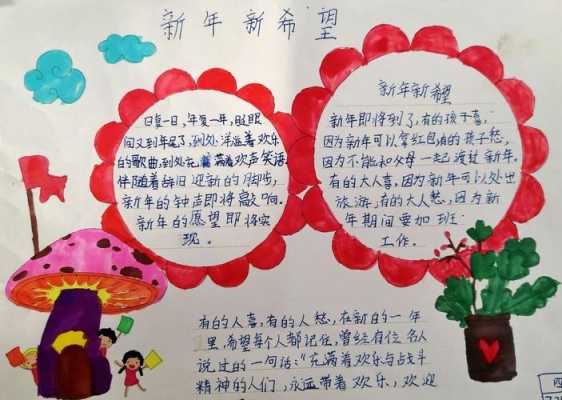 新年新希望
日复一日，年复一年，眨眼
间又到年尾了，到处洋溢着欢乐
的歌曲，到处充满着欢声笑语，
伴随着辞旧迎新的脚步，
新年的钟声即将敲响。
新年的愿望即将实
现。
新年新希望
新年即将到了，有的孩子喜，
因为新年可以拿红包，有的孩子愁，
因为不能和父母一起渡过新年。
有的大人喜，因为新年可以处出
旅游，有的大人愁，因为新
年期间要加班
工作。
有的人喜，有的人愁，在新的一年
里，希望每个人都记住，曾经有位名人
说过的一句话："充满着欢乐与战斗
精神的人们，永远带着欢乐，欢迎
四